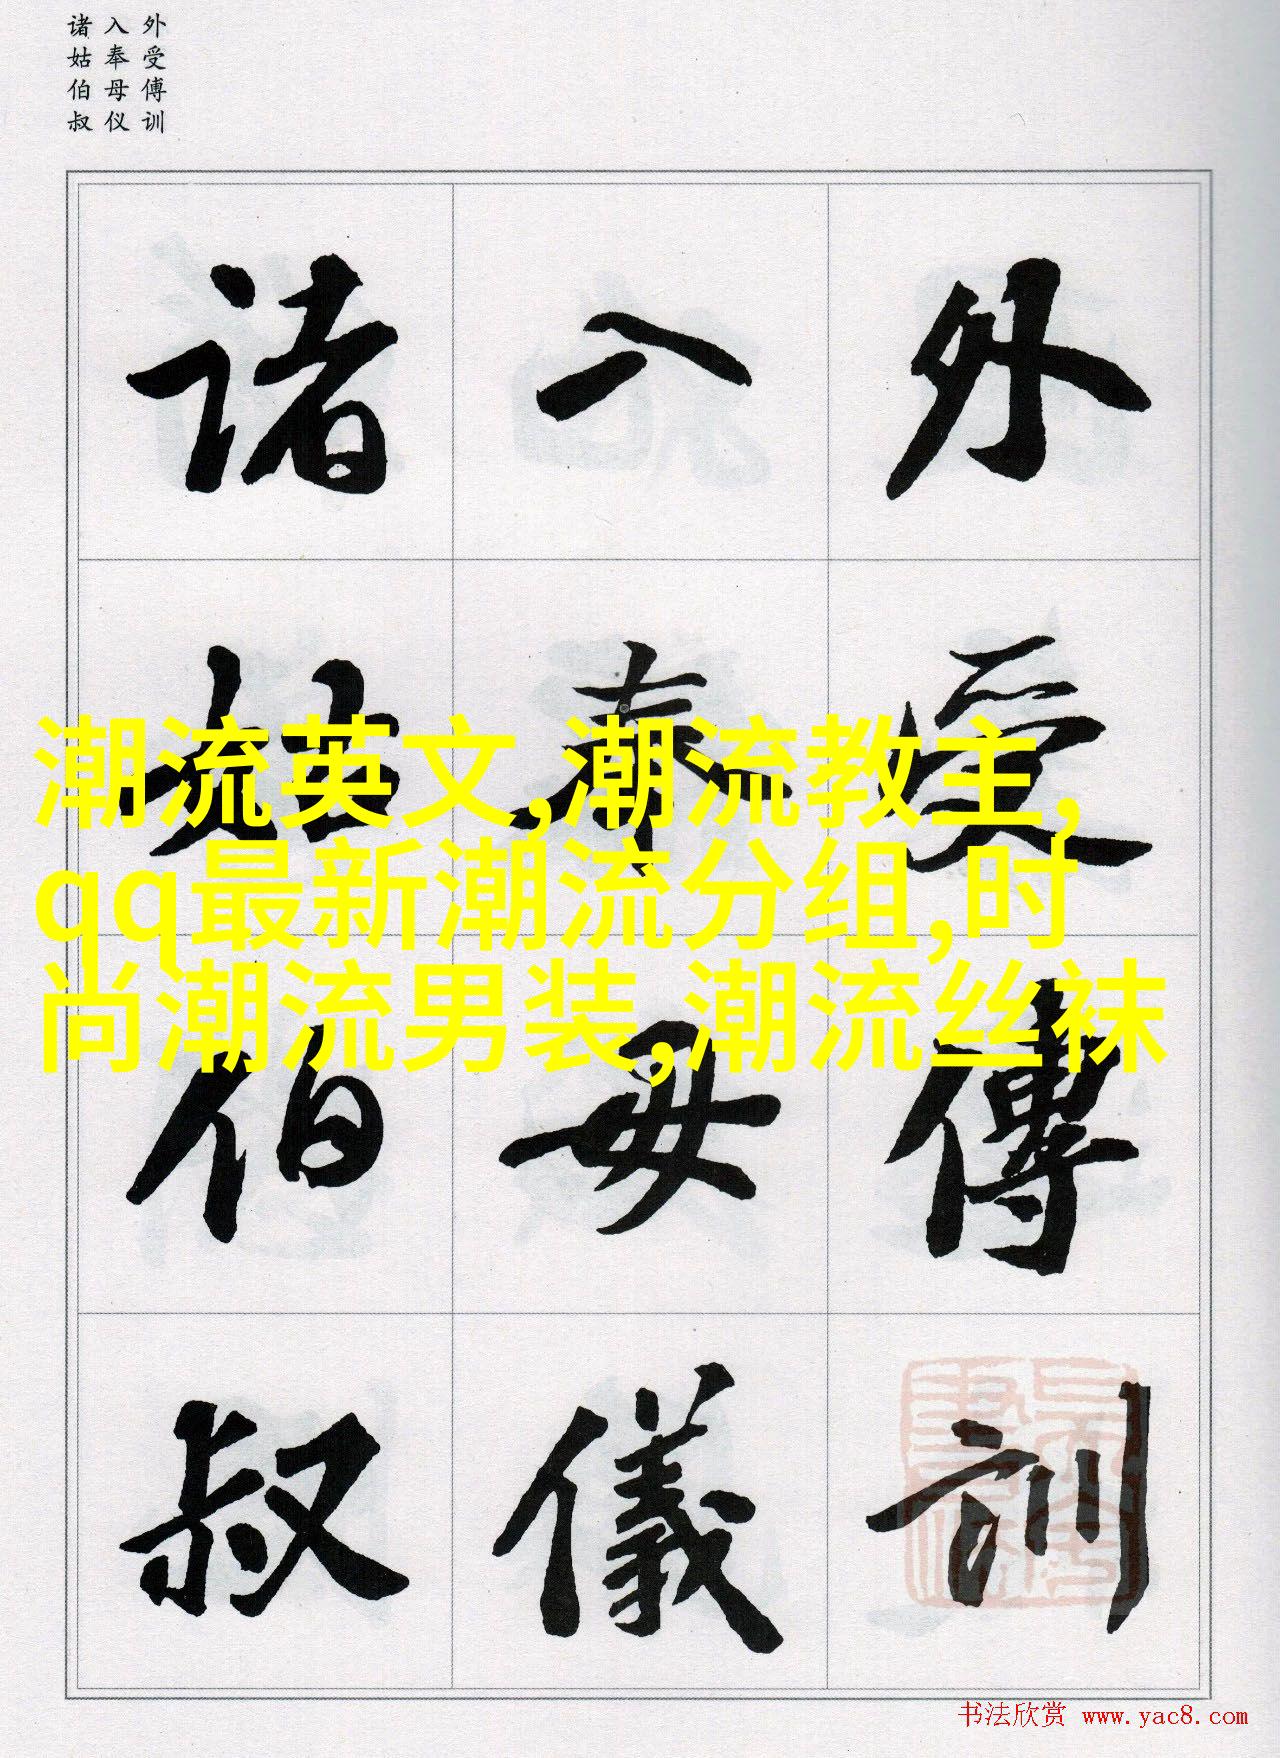 外受傅训
入奉母仪
诸姑伯叔
外受傅訓
入奉母儀
诸姑伯叔
潮流英文,潮流教主,
qq最新潮流分组,时
尚潮流男装,潮流丝袜
书法欣赏 www.yac8.com